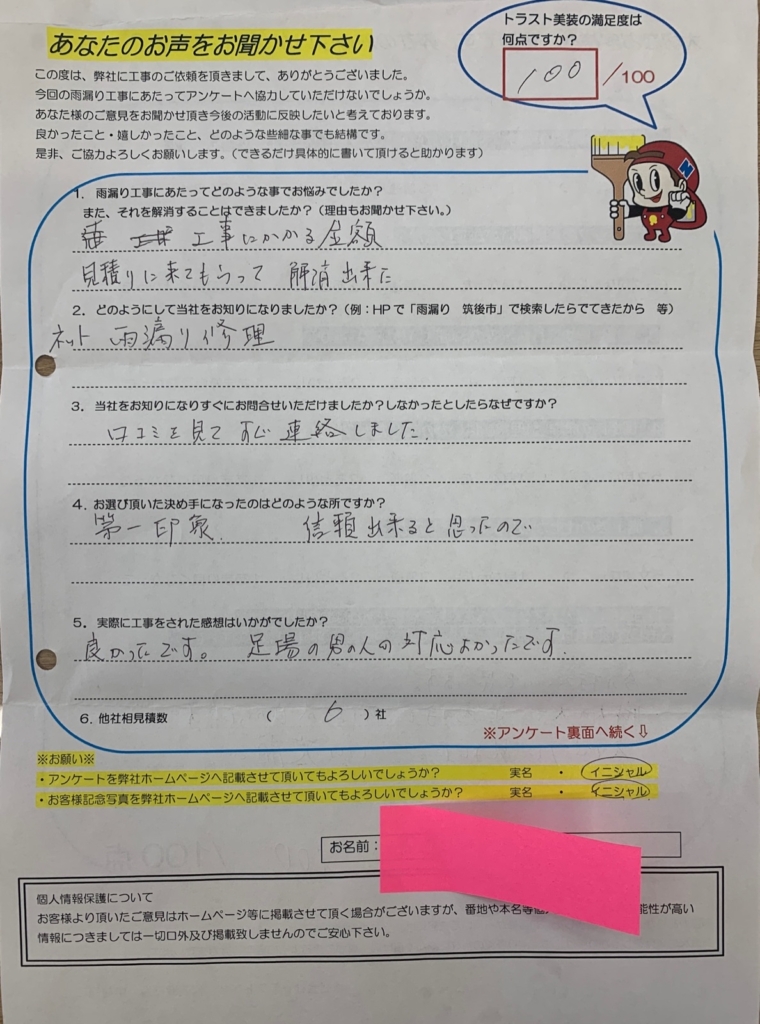 あなたのお声をお聞かせ下さい
トラスト美装の満足度は
何点ですか?
100/100
この度は、弊社に工事のご依頼を頂きまして、ありがとうございました。
今回の雨漏り工事にあたってアンケートへ協力していただけないでしょうか。
あなた様のご意見をお聞かせ頂き今後の活動に反映したいと考えております。
良かったこと・嬉しかったこと、どのような些細な事でも結構です。
是非、ご協力よろしくお願いします。(できるだけ具体的に書いて頂けると助かります)
N
1. 雨漏り工事にあたってどのような事でお悩みでしたか?
また、それを解消することはできましたか?(理由もお聞かせ下さい。)
工事にかかる金額
見積りに来てもらって 解消出来た
2. どのようにして当社をお知りになりましたか?(例:HPで「雨漏り 筑後市」で検索したらでてきたから 等)
ネット 雨漏り修理
3. 当社をお知りになりすぐにお問合せいただけましたか?しなかったとしたらなぜですか?
口コミを見て すぐ 連絡しました.
4. お選び頂いた決め手になったのはどのような所ですか?
第一印象. 信頼出来ると思ったので
5. 実際に工事をされた感想はいかがでしたか?
良かったです。 足場の男の人の対応よかったです.
6. 他社相見積数 ( 6 )社
※アンケート裏面へ続く⇩
※お願い※
・アンケートを弊社ホームページへ記載させて頂いてもよろしいでしょうか? 実名 ・ イニシャル
・お客様記念写真を弊社ホームページへ記載させて頂いてもよろしいでしょうか? 実名 ・ イニシャル
お名前:
個人情報保護について
お客様より頂いたご意見はホームページ等に掲載させて頂く場合がございますが、番地や本名等個 能性が高い
情報につきましては一切口外及び掲載致しませんのでご安心下さい。